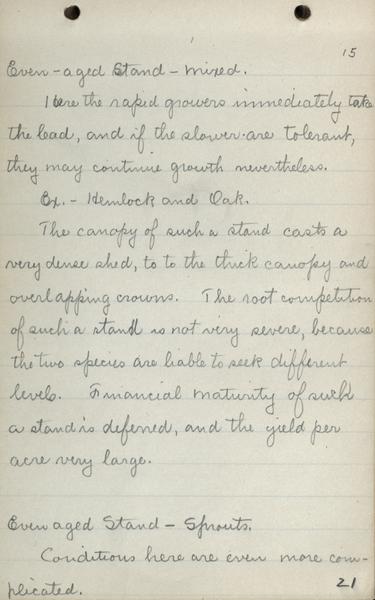 15
Even-aged Stand - mixed.
Here the rapid growers immediately take
the lead, and if the slower are tolerant,
they may continue growth nevertheless.
Ex. - Hemlock and Oak.
The canopy of such a stand casts a
very dense shed, to to the thick canopy and
overlapping crowns. The root competition
of such a stand is not very severe, because
the two species are liable to seek different
levels. Financial maturity of such
a stand is deferred, and the yield per
acre very large.
Even aged Stand - Sprouts.
Conditions here are even more com-
plicated.
21